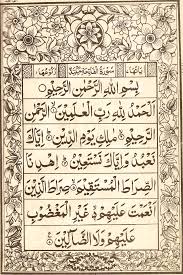 سورة الفاتحة مكية
بسم الله الرحمن الرحيم
الحمد لله رب العلمين الرحمن
الرحيم ملك يوم الدين إياك
نعبد وإياك نستعين اهدنا
الصراط المستقيم صراط الذين
أنعمت عليهم غير المغضوب
عليهم ولا الضالين